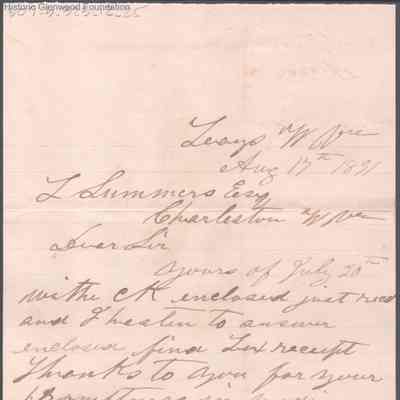 Historic Glenwood Foundation
Leons W Va
Aug 17th 1891
L Summers Esq
Charleston W Va
Dear Sir
Yours of July 20th
withe ck enclosed just recd
and I hasten to answer
enclosed find Tax receipt
Thanks to you for your